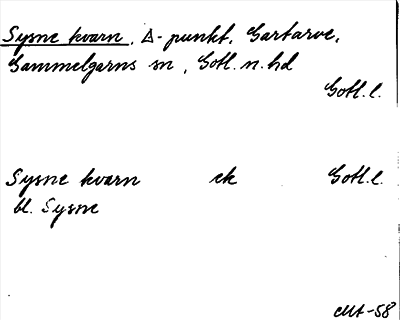 Sysne kvarn, △-punkt, Gartarve,
Gammelgarns sn, Gotl. n. hd
Gotl. l.
Sysne kvarn ek Gotl. l.
bl. Sysne